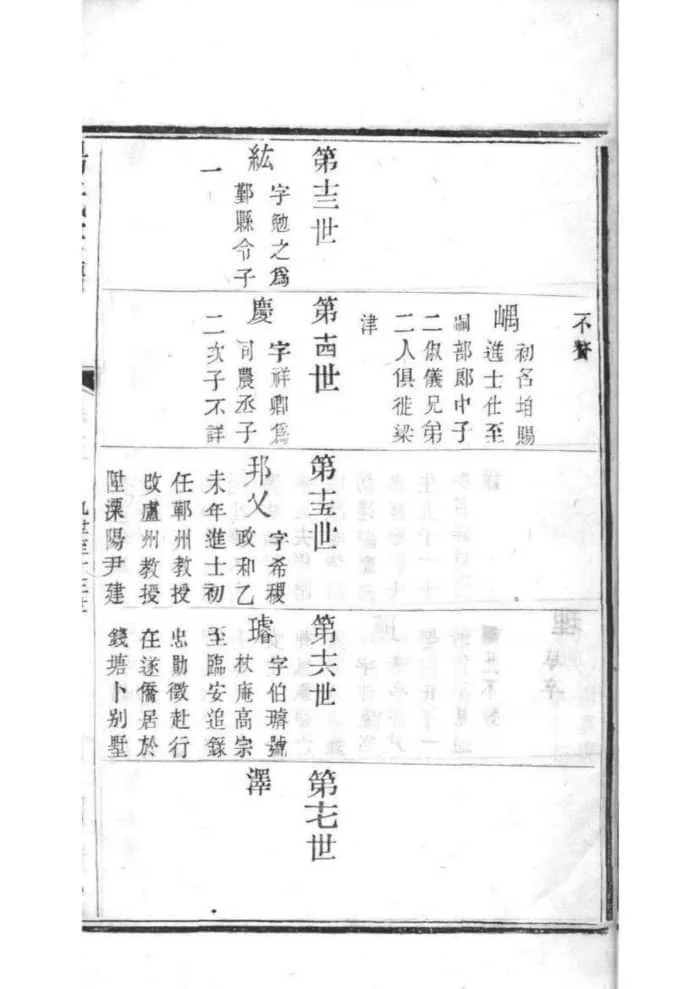 第十三世
紘
字勉之爲
鄞縣令子
一
不贅
嵎
初名㘽賜
進士仕至
嗣部郎中子
二俶儀兄弟
二人俱徙梁
津
第十四世
慶
字祥卿爲
司農丞子
二次子不詳
第十五世
邦乂
字希稷
政和乙
未年進士初
任鄆州教授
改廬州教授
陞溧陽尹建
第十六世
璿
字伯璿號
杖庵高宗
至臨安追錄
忠勛徵赴行
在遂僑居於
錢塘卜别墅
第十七世
澤
九世至十三世